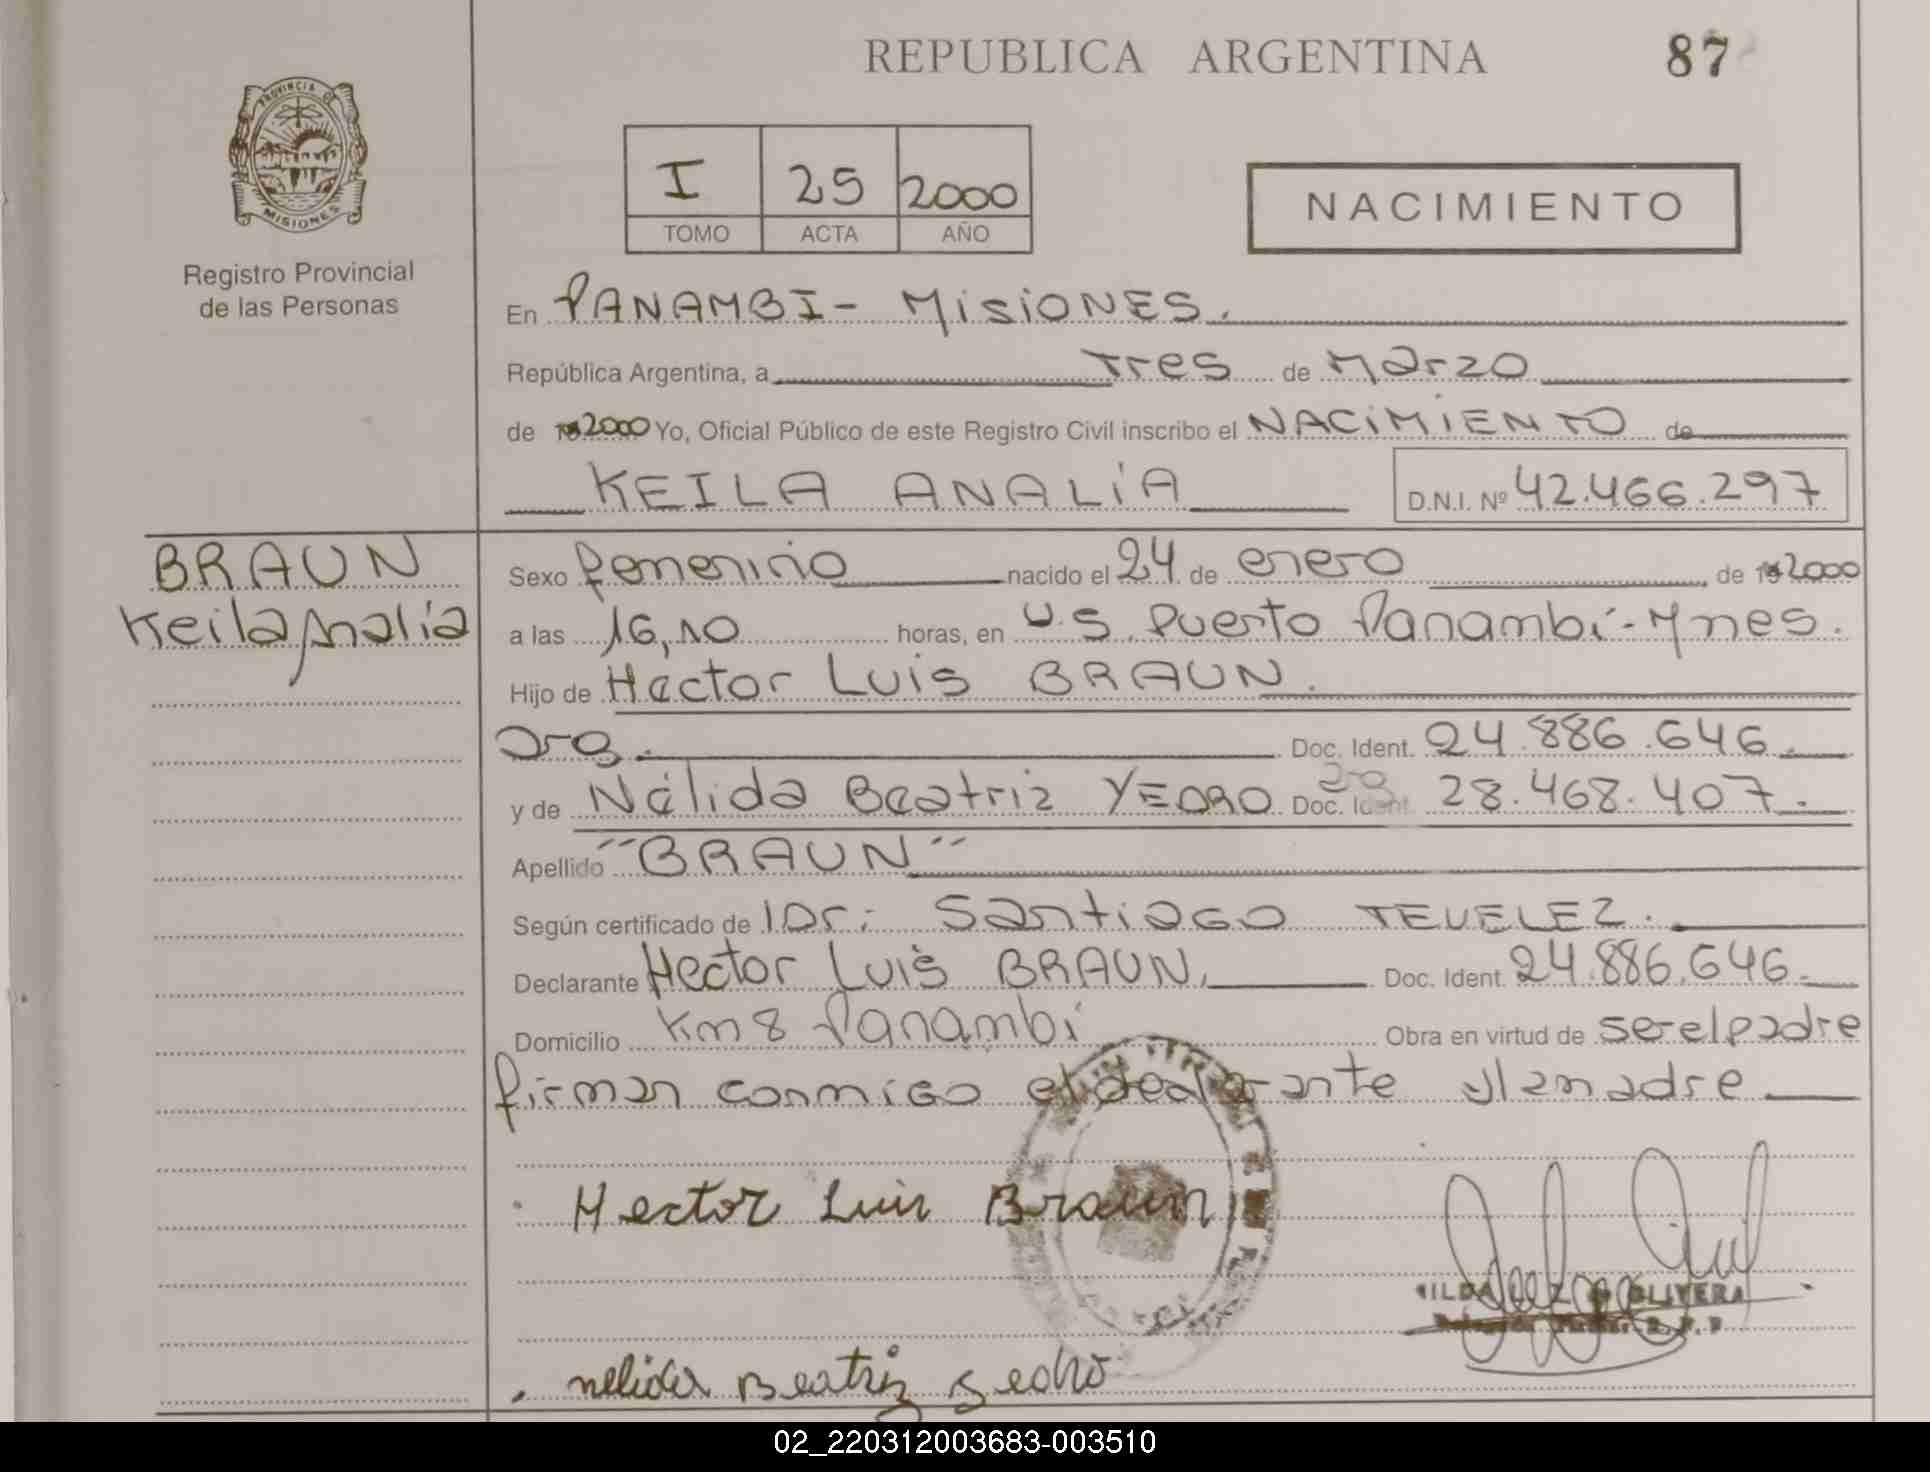 REPUBLICA ARGENTINA
87
PROVINCIA DE
MISIONES
Registro Provincial
de las Personas
I 25 2000
TOMO ACTA AÑO
NACIMIENTO
En PANAMBI - MISIONES.
República Argentina, a tres de Marzo
de 2000 Yo, Oficial Público de este Registro Civil inscribo el NACIMIENTO de
KEILA ANALIA D.N.I. Nº 42.466.297
BRAUN
Keila Analia
Sexo femenino nacido el 24 de enero de 2000
a las 16,10 horas, en U.S. Puerto Panambí - Mnes.
Hijo de Héctor Luis BRAUN.
arg. Doc. Ident. 24.886.646
y de Nélida Beatriz YEDRO arg Doc. Ident. 28.468.407.
Apellido "BRAUN"
Según certificado de Dr: Santiago TEVELEZ.
Declarante Hector Luis BRAUN, Doc. Ident. 24.886.646.
Domicilio Km 8 Panambí Obra en virtud de ser el padre
firman conmigo el declarante y la madre
Hector Luis Braun
OLIVERA
nelida Beatriz Yedro
02_220312003683-003510